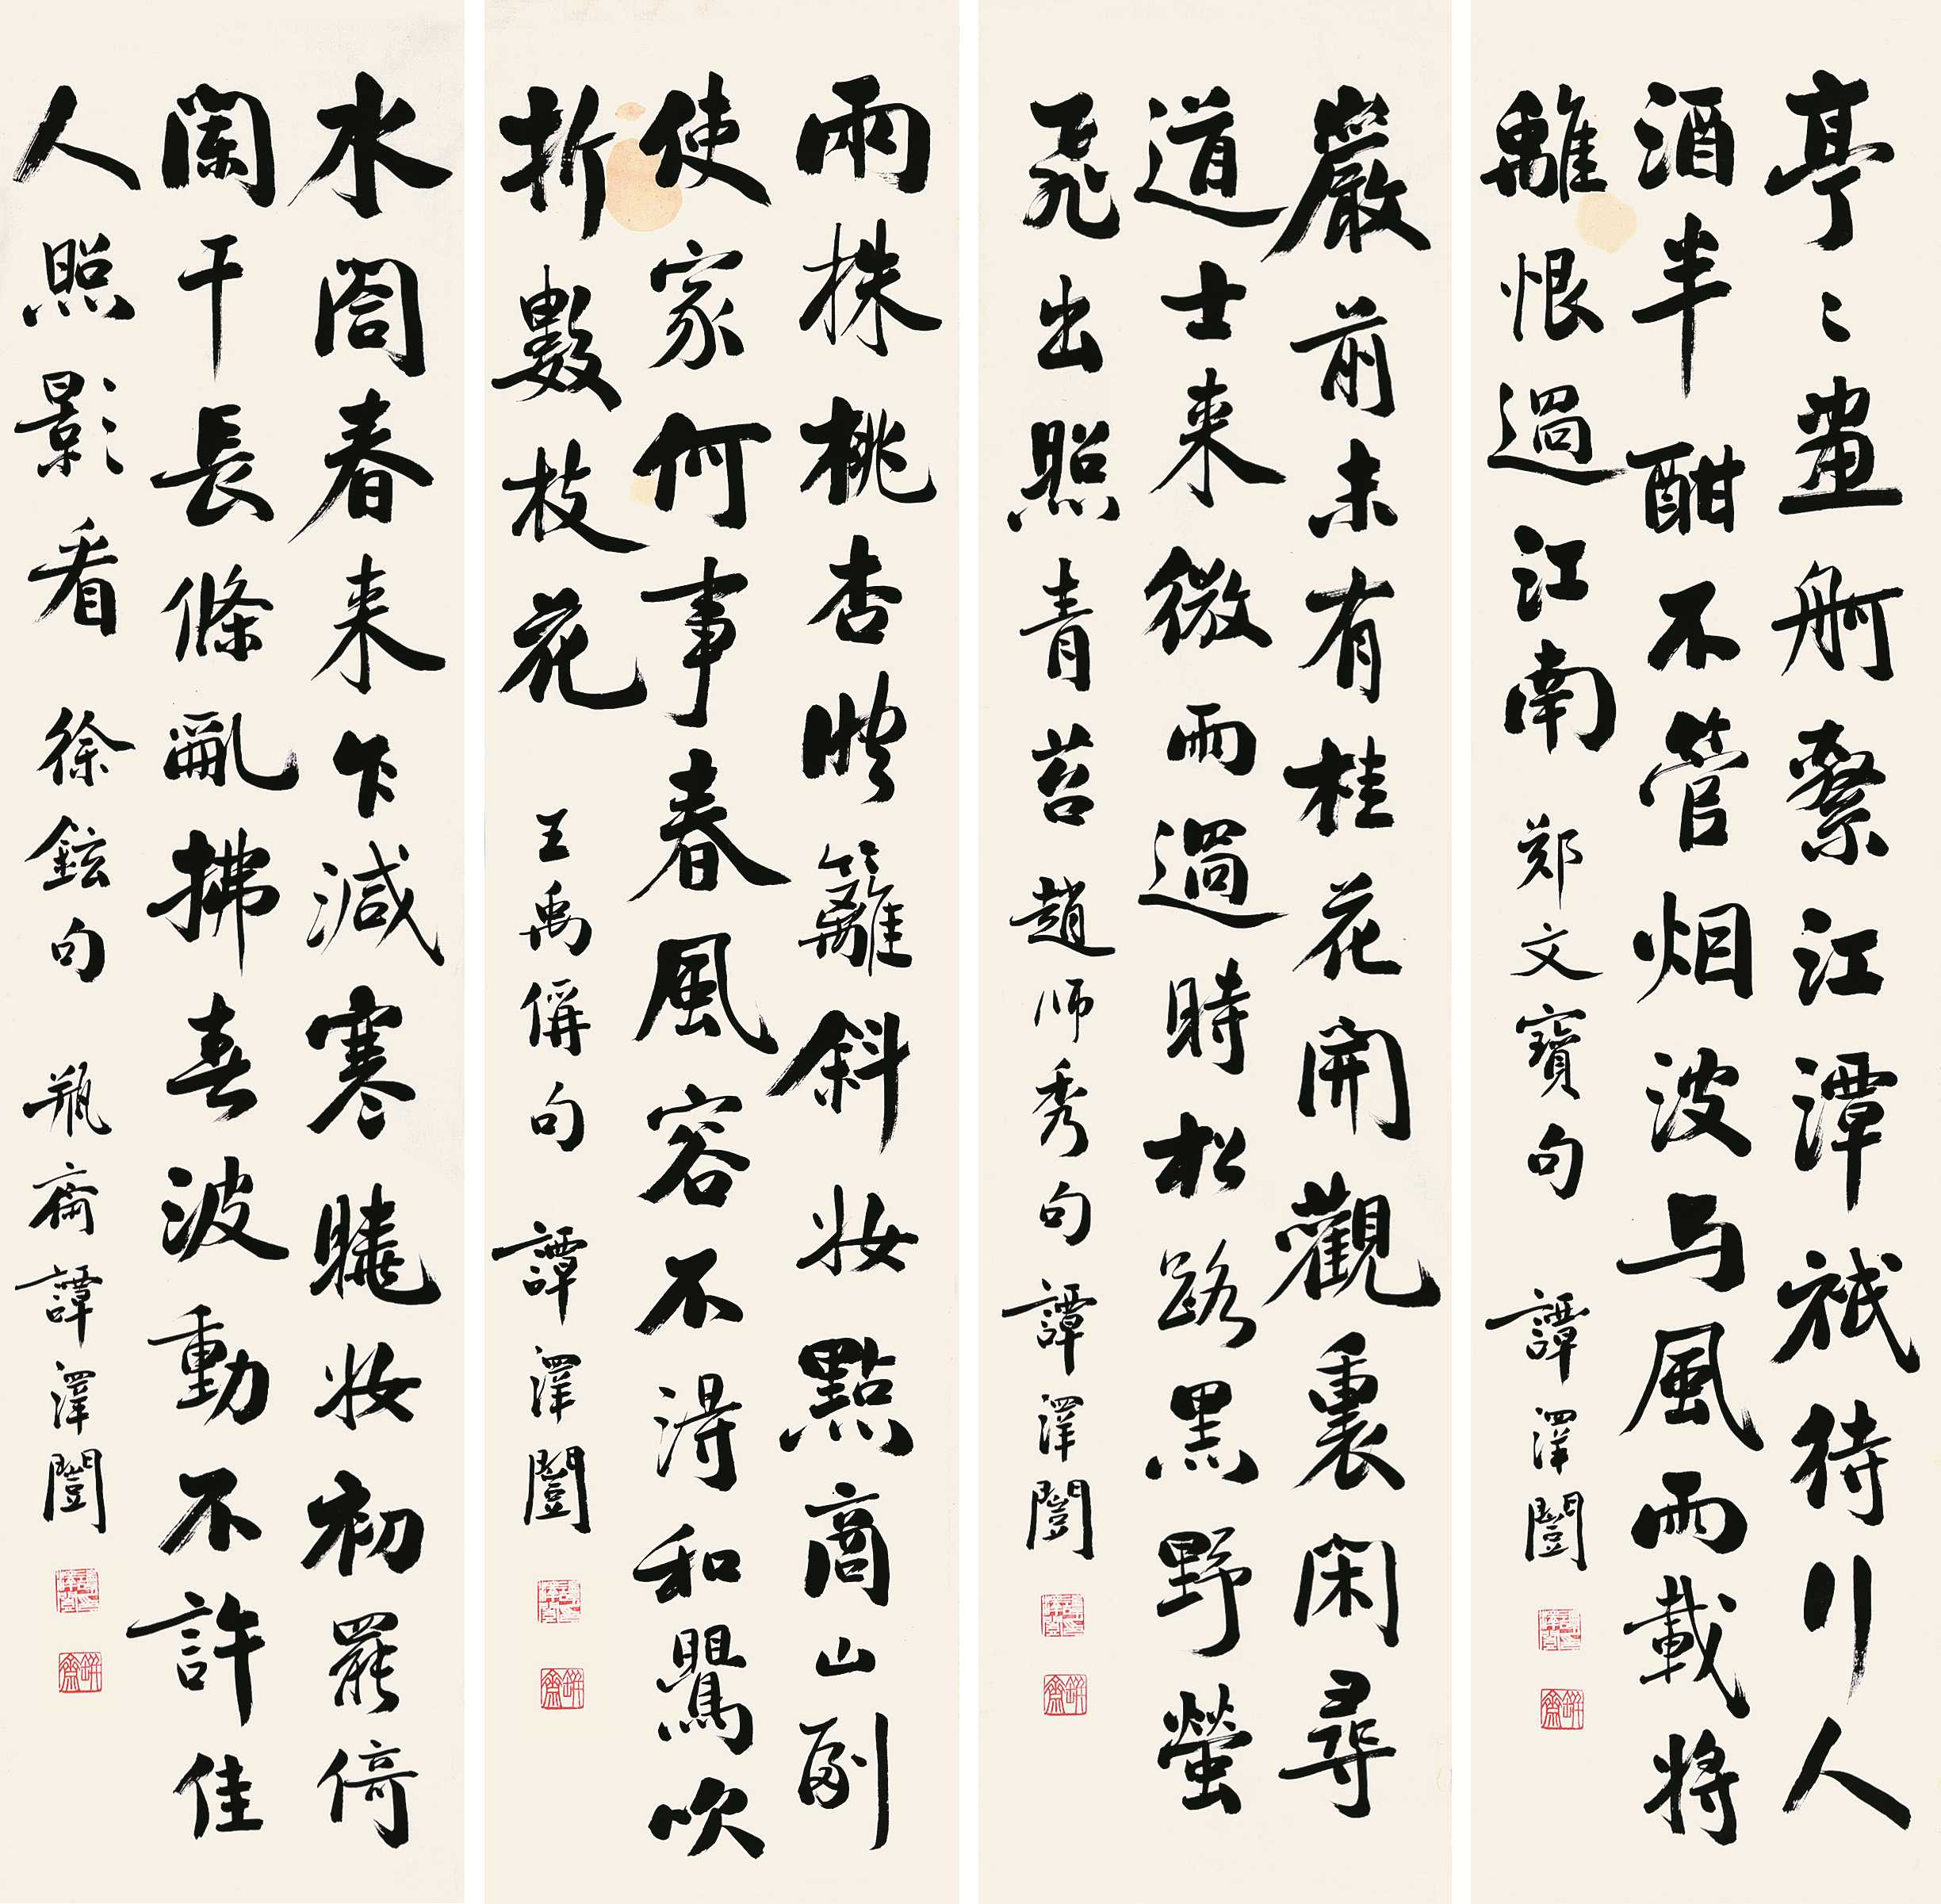 亭〻畫舸繫江潭祇待行人
酒半酣不管烟波与風雨載將
離恨過江南 郑文寶句 譚澤闓
巖前未有桂花開觀裏閑尋
道士来微雨過時松路黑野螢
飛出照青苔 趙师秀句 譚澤闓
兩株桃杏映籬斜妝點商山副
使家何事春風容不得和鶯吹
折數枝花 王禹偁句 譚澤闓
水閣春来乍減寒曉妝初罷倚
闌干長條亂拂春波動不許佳
人照影看 徐鉉句 瓶齋譚澤闓